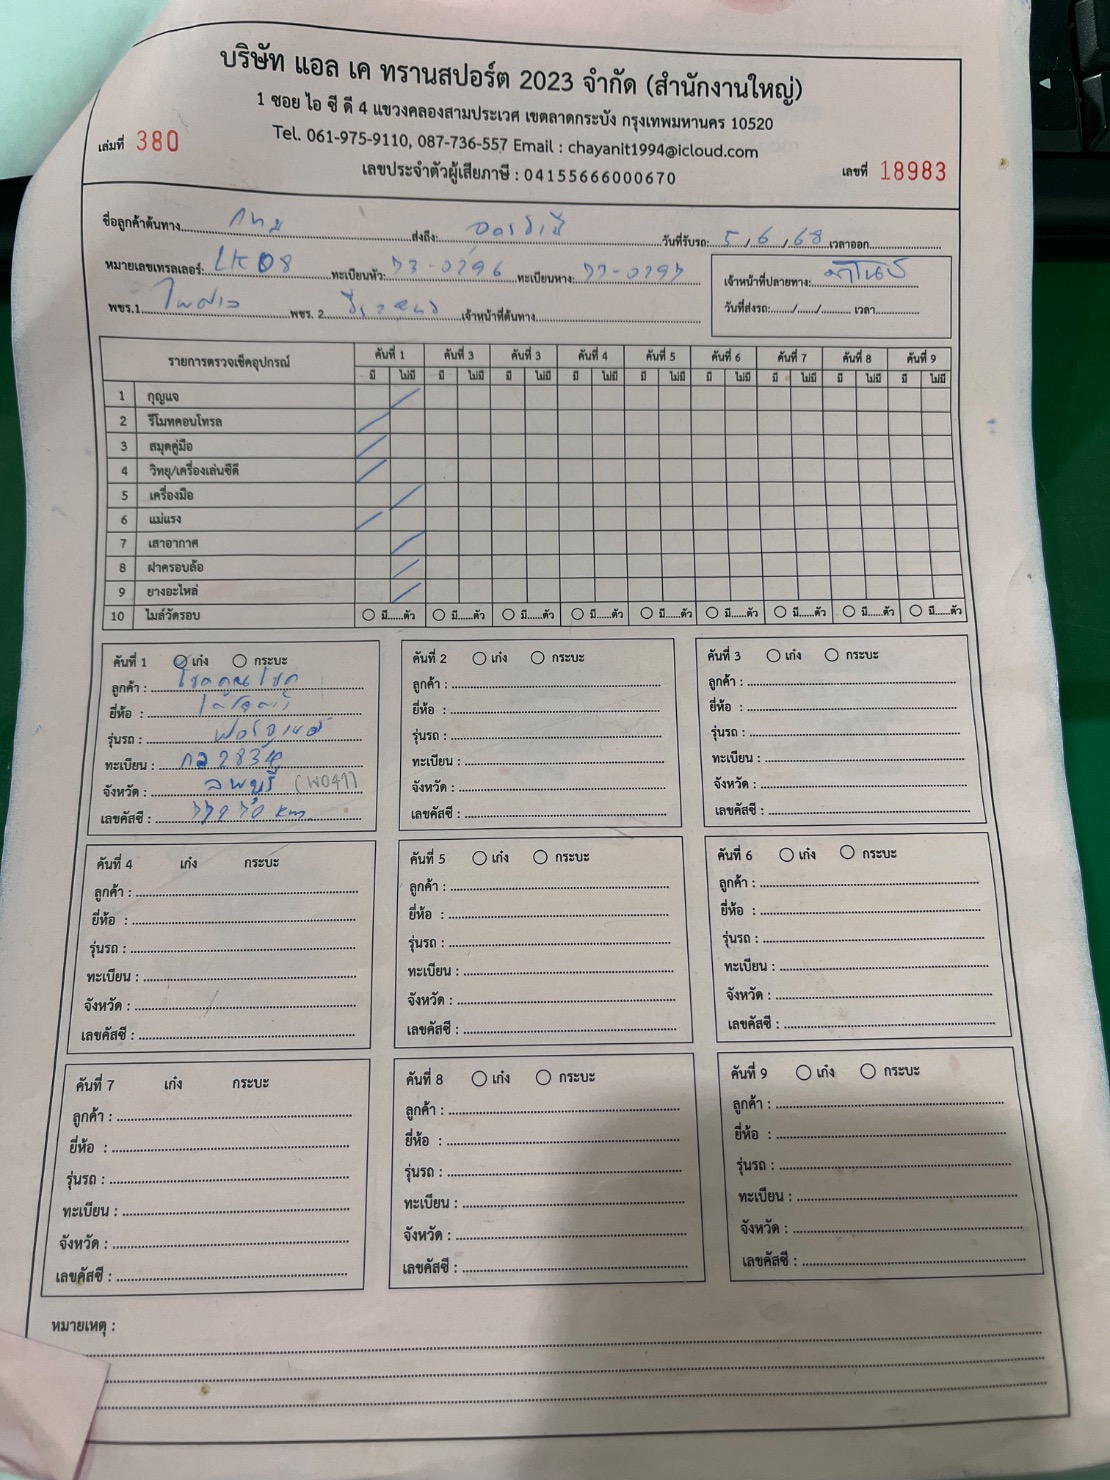 บริษัท แอล เค ทรานสปอร์ต 2023 จำกัด (สำนักงานใหญ่)
1 ซอย ไอ ซี ดี 4 แขวงคลองสามประเวศ เขตลาดกระบัง กรุงเทพมหานคร 10520
Tel. 061-975-9110, 087-736-557 Email : chayanit1994@icloud.com
เลขประจำตัวผู้เสียภาษี : 04155666000670
เล่มที่ 380 เลขที่ 18983
ชื่อลูกค้าต้นทาง กทม ส่งถึง: อุดรธานี วันที่รับรถ: 5/6/68 เวลาออก
หมายเลขเทรลเลอร์: LK08 ทะเบียนหัว: 73-0296 ทะเบียนหาง: 77-0297 เจ้าหน้าที่ปลายทาง:
พขร.1 ไพศาล พขร. 2 เจ้าหน้าที่ต้นทาง วันที่ส่งรถ:....../....../...... เวลา
รายการตรวจเช็คอุปกรณ์ คันที่ 1 คันที่ 3 คันที่ 3 คันที่ 4 คันที่ 5 คันที่ 6 คันที่ 7 คันที่ 8 คันที่ 9
มี ไม่มี มี ไม่มี มี ไม่มี มี ไม่มี มี ไม่มี มี ไม่มี มี ไม่มี มี ไม่มี มี ไม่มี
1 กุญแจ
2 รีโมทคอนโทรล
3 สมุดคู่มือ
4 วิทยุ/เครื่องเล่นซีดี
5 เครื่องมือ
6 แม่แรง
7 เสาอากาศ
8 ฝาครอบล้อ
9 ยางอะไหล่
10 ไมล์วัดรอบ มี......ตัว มี......ตัว มี......ตัว มี......ตัว มี......ตัว มี......ตัว มี......ตัว มี......ตัว มี......ตัว
คันที่ 1 เก๋ง กระบะ
ลูกค้า : โชคคูณโชค
ยี่ห้อ :
รุ่นรถ : ฟอร์จูนเนอร์
ทะเบียน :
จังหวัด : ลพบุรี
เลขคัสซี :
คันที่ 2 เก๋ง กระบะ
ลูกค้า :
ยี่ห้อ :
รุ่นรถ :
ทะเบียน :
จังหวัด :
เลขคัสซี :
คันที่ 3 เก๋ง กระบะ
ลูกค้า :
ยี่ห้อ :
รุ่นรถ :
ทะเบียน :
จังหวัด :
เลขคัสซี :
คันที่ 4 เก๋ง กระบะ
ลูกค้า :
ยี่ห้อ :
รุ่นรถ :
ทะเบียน :
จังหวัด :
เลขคัสซี :
คันที่ 5 เก๋ง กระบะ
ลูกค้า :
ยี่ห้อ :
รุ่นรถ :
ทะเบียน :
จังหวัด :
เลขคัสซี :
คันที่ 6 เก๋ง กระบะ
ลูกค้า :
ยี่ห้อ :
รุ่นรถ :
ทะเบียน :
จังหวัด :
เลขคัสซี :
คันที่ 7 เก๋ง กระบะ
ลูกค้า :
ยี่ห้อ :
รุ่นรถ :
ทะเบียน :
จังหวัด :
เลขคัสซี :
คันที่ 8 เก๋ง กระบะ
ลูกค้า :
ยี่ห้อ :
รุ่นรถ :
ทะเบียน :
จังหวัด :
เลขคัสซี :
คันที่ 9 เก๋ง กระบะ
ลูกค้า :
ยี่ห้อ :
รุ่นรถ :
ทะเบียน :
จังหวัด :
เลขคัสซี :
หมายเหตุ :